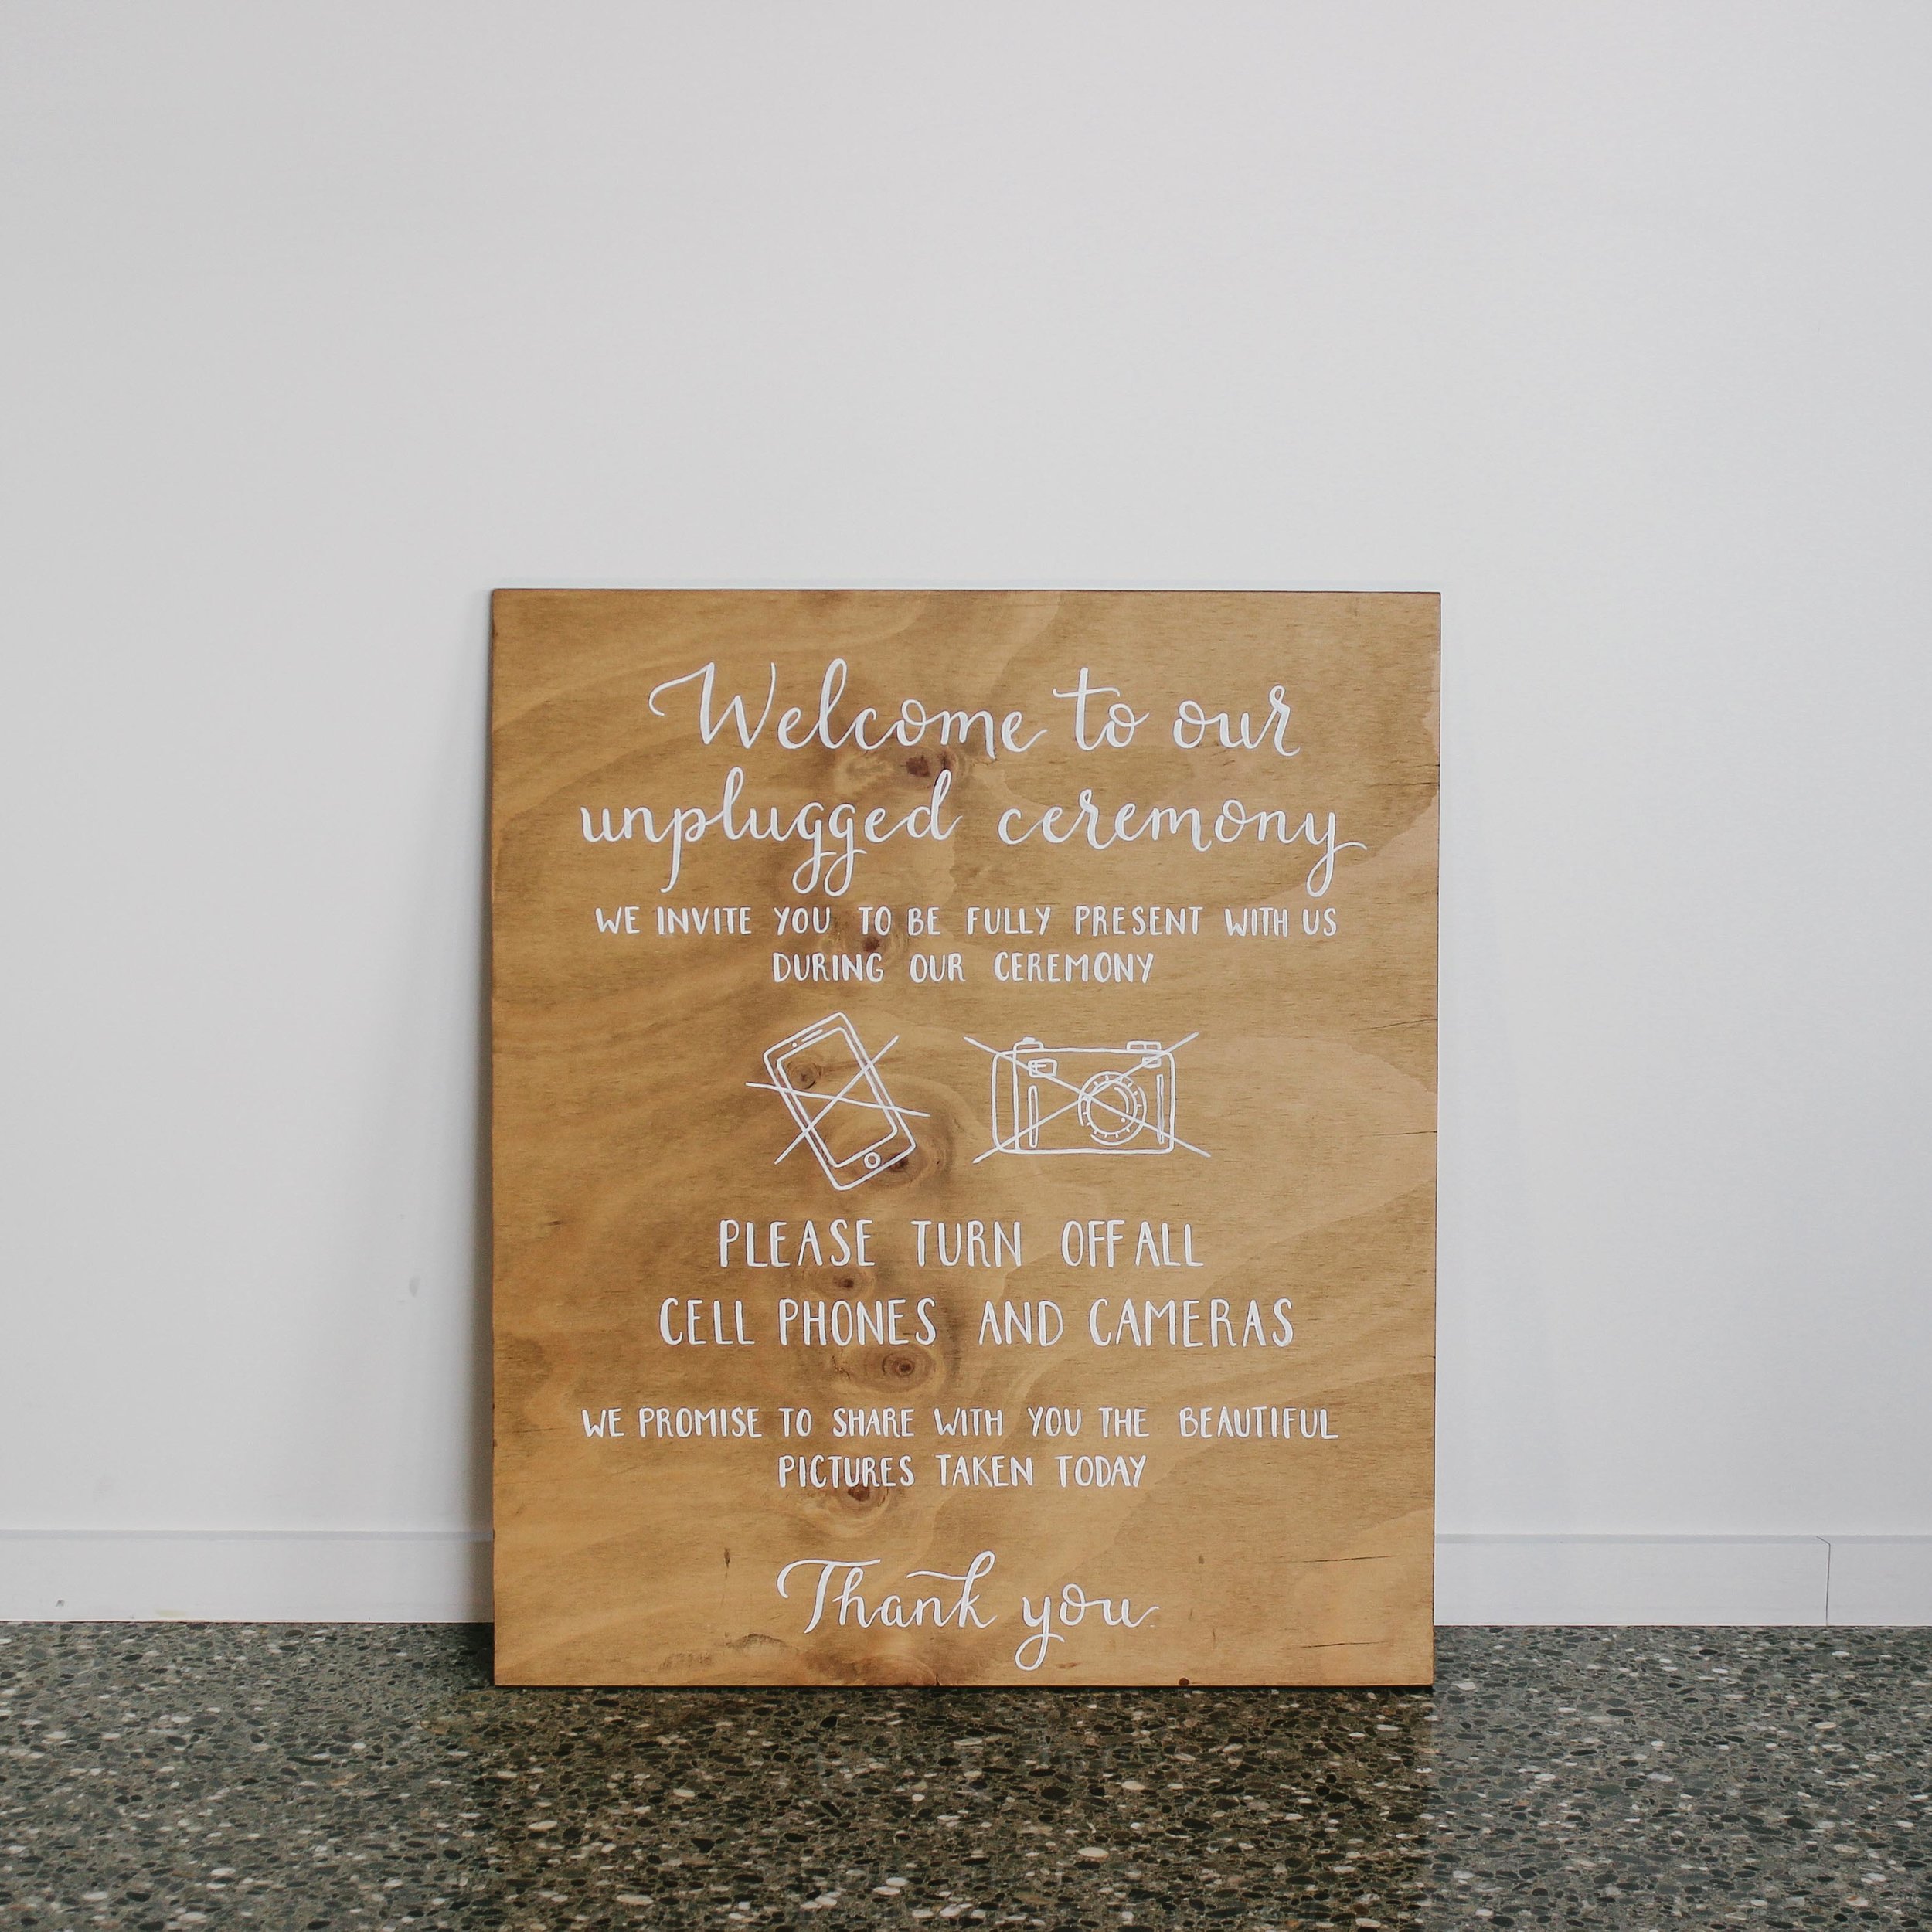 Welcome to our
unplugged ceremony
WE INVITE YOU TO BE FULLY PRESENT WITH US
DURING OUR CEREMONY
PLEASE TURN OFF ALL
CELL PHONES AND CAMERAS
WE PROMISE TO SHARE WITH YOU THE BEAUTIFUL
PICTURES TAKEN TODAY
Thank you